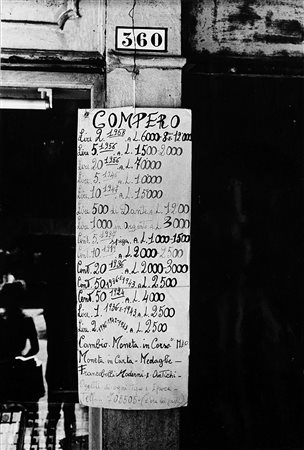 360
COMPERO
Lire 2 1958 a L 6000-8 e 12000
Lire 5 1956 a L 1500-2000
Lire 20 1956 a L 70000
Lire 5 1946 a L 10000
Lire 10 1947 a L 15000
Lire 500 di Dante a L 12.00
Lire 1000 in argento a L 3000
Cent. 5 a L 1000-1500
Cent. 10 a L 2000-2500
Cent. 20 1936 a L 2000-3000
Cent. 50 1936 1943 a L 2500
Cent. 50 1924 a L 4000
Lire 1 1936 1943 a L 2500
Lire 2 a L 2500
Cambio Moneta in Corso
Moneta in Carta - Medaglie -
Francobolli Moderni e Antichi -
Oggetti di ogni Tipo e Epoca